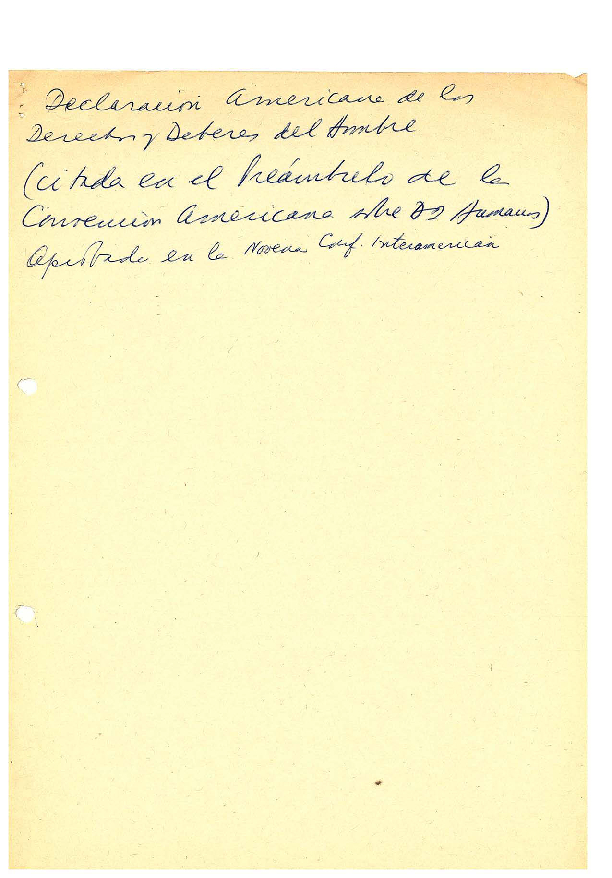 Declaración Americana de los
Derechos y Deberes del Hombre
(citada en el Preámbulo de la
Convención Americana sobre DD Humanos)
Aprobada en la Novena Conf. Interamerican